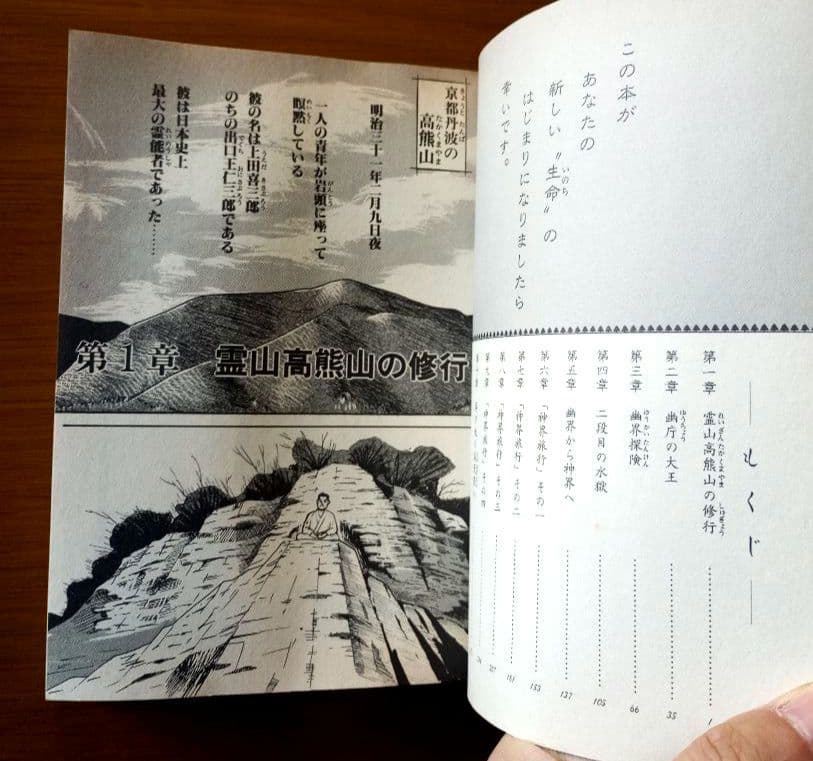 この本が
あなたの
新しい〝生命〟の
はじまりになりましたら
幸いです。
もくじ
第一章 霊山高熊山の修行 1
第二章 幽庁の大王 35
第三章 幽界探険 66
第四章 二段目の水獄 105
第五章 幽界から神界へ 137
第六章 「神界旅行」その一 153
第七章 「神界旅行」その二 161
第八章 「神界旅行」その三
第九章 「神界旅行」その四
京都丹波の
高熊山
明治三十一年二月九日夜
一人の青年が岩頭に座って
瞑黙している
彼の名は上田喜三郎
のちの出口王仁三郎である
彼は日本史上
最大の霊能者であった……
第1章 霊山高熊山の修行